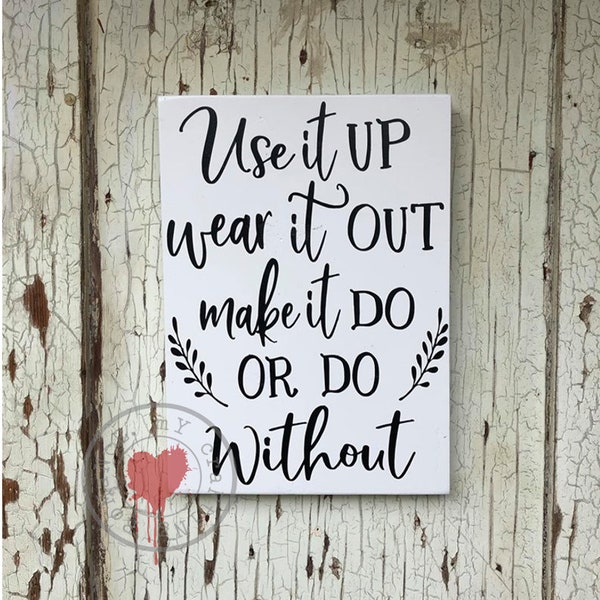 Use it UP
wear it OUT
make it DO
OR DO
Without